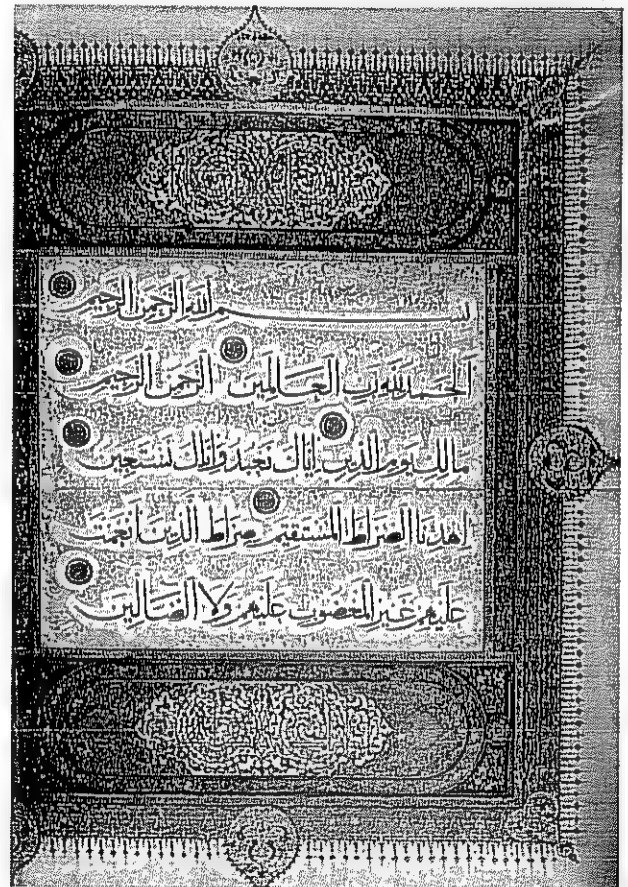 بسم الله الرحمن الرحيم
الحمد لله رب العالمين الرحمن الرحيم
مالك يوم الدين اياك نعبد واياك نستعين
اهدنا الصراط المستقيم صراط الذين انعمت
عليهم غير المغضوب عليهم ولا الضالين